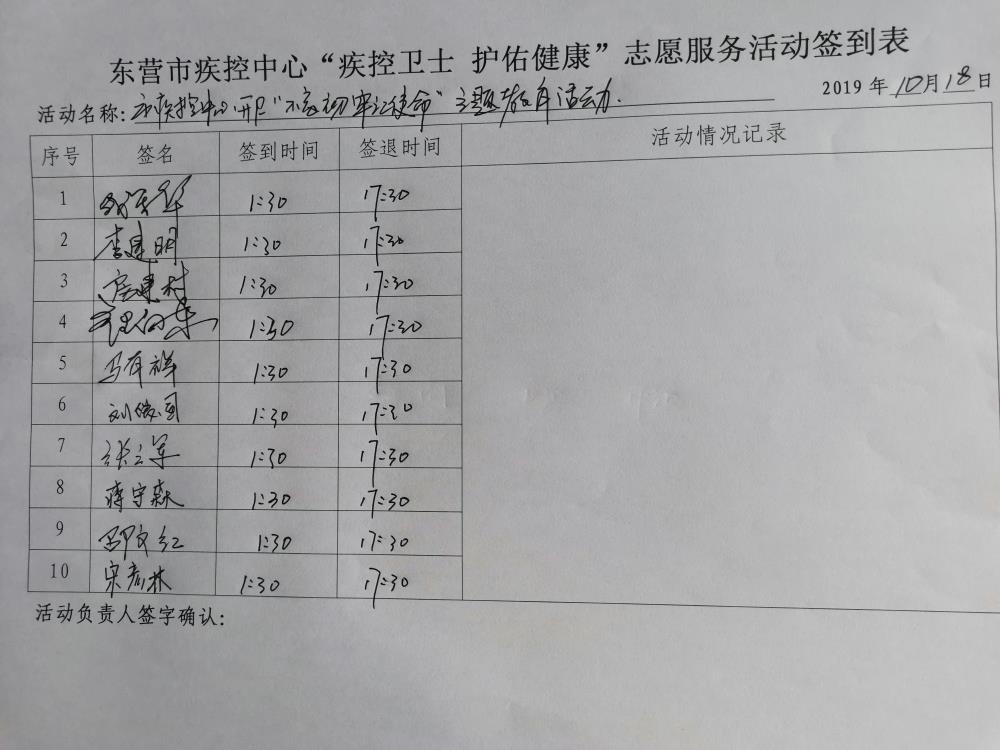 东营市疾控中心“疾控卫士 护佑健康”志愿服务活动签到表
活动名称: 市疾控中心 “不忘初 牢记使命”主题教育活动. 2019 年 10月 18日
序号 签名 签到时间 签退时间 活动情况记录
1 1:30 17:30
2 李建明 1:30 17:30
3 房建村 1:30 17:30
4 1:30 17:30
5 马有祥 1:30 17:30
6 刘俊国 1:30 17:30
7 张立军 1:30 17:30
8 蒋守森 1:30 17:30
9 1:30 17:30
10 宋彦林 1:30 17:30
活动负责人签字确认: